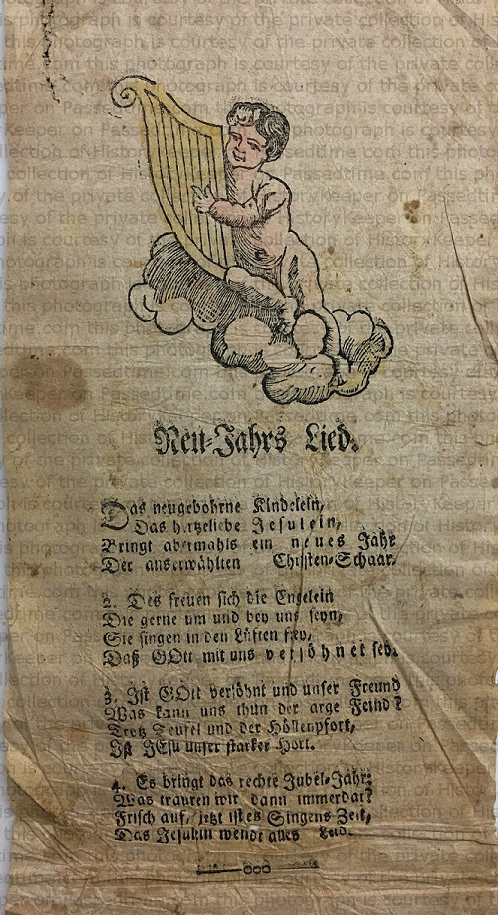 Neu-Jahrs Lied.
Das neugebohrne Kindelein,
Das hertzeliebe Jesulein,
Bringt abermahls ein neues Jahr
Der auserwählten Christen-Schaar.
2. Des freuen sich die Engelein
Die gerne um und bey uns seyn,
Sie singen in den Lüften frey,
Daß GOtt mit uns versöhnet sey.
3. Ist GOtt versöhnt und unser Freund
Was kann uns thun der arge Feind?
Trotz Teufel und der Höllenpfort,
Ist JEsu unser starker Hort.
4. Es bringt das rechte Jubel-Jahr;
Was trauren wir dann immerdar?
Frisch auf, jetzt ist es Singens Zeit,
Das Jesulein wendt alles Leid.